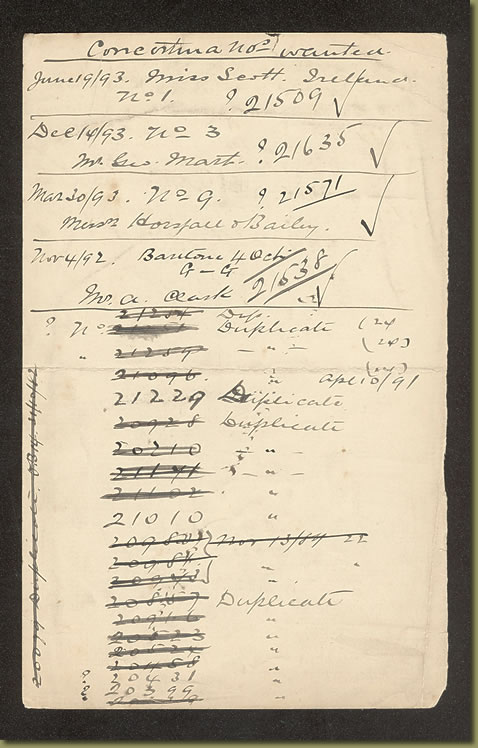 Concertina Nos wanted.
June 19/93. Miss Scott. Ireland.
No 1. ? 21509 √
Dec 14/93. No 3
Mr. Geo. Mart. ? 21635 √
Mar 30/93. No 9. ? 21571 √
Messrs Horsfall & Bailey.
Nov 4/92. Baritone 4 Oct
G–G
Mr. A. Cask 21538 √
21254 Dup.
? No Duplicate (24
" 21259 – " – (24)
21096. " (24)
Apl 10/91
21229 Duplicate
20928 Duplicate
20210 "
21171 – " –
21102 "
21010 "
20982 Nov 13/84
2098 "
20943 "
20887 Duplicate
20916 "
20523 "
"
20458 "
? 20431 "
? 20399 "
20019 Duplicate